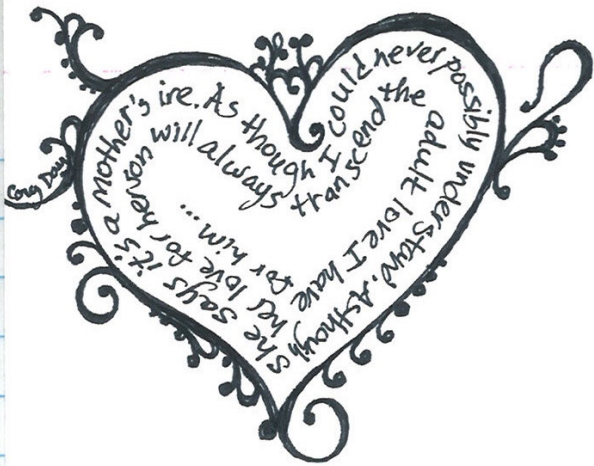 she says it's a mother's ire. As though I could never possibly understand. As though
her love for her son will always transcend the adult love I have
for him ...